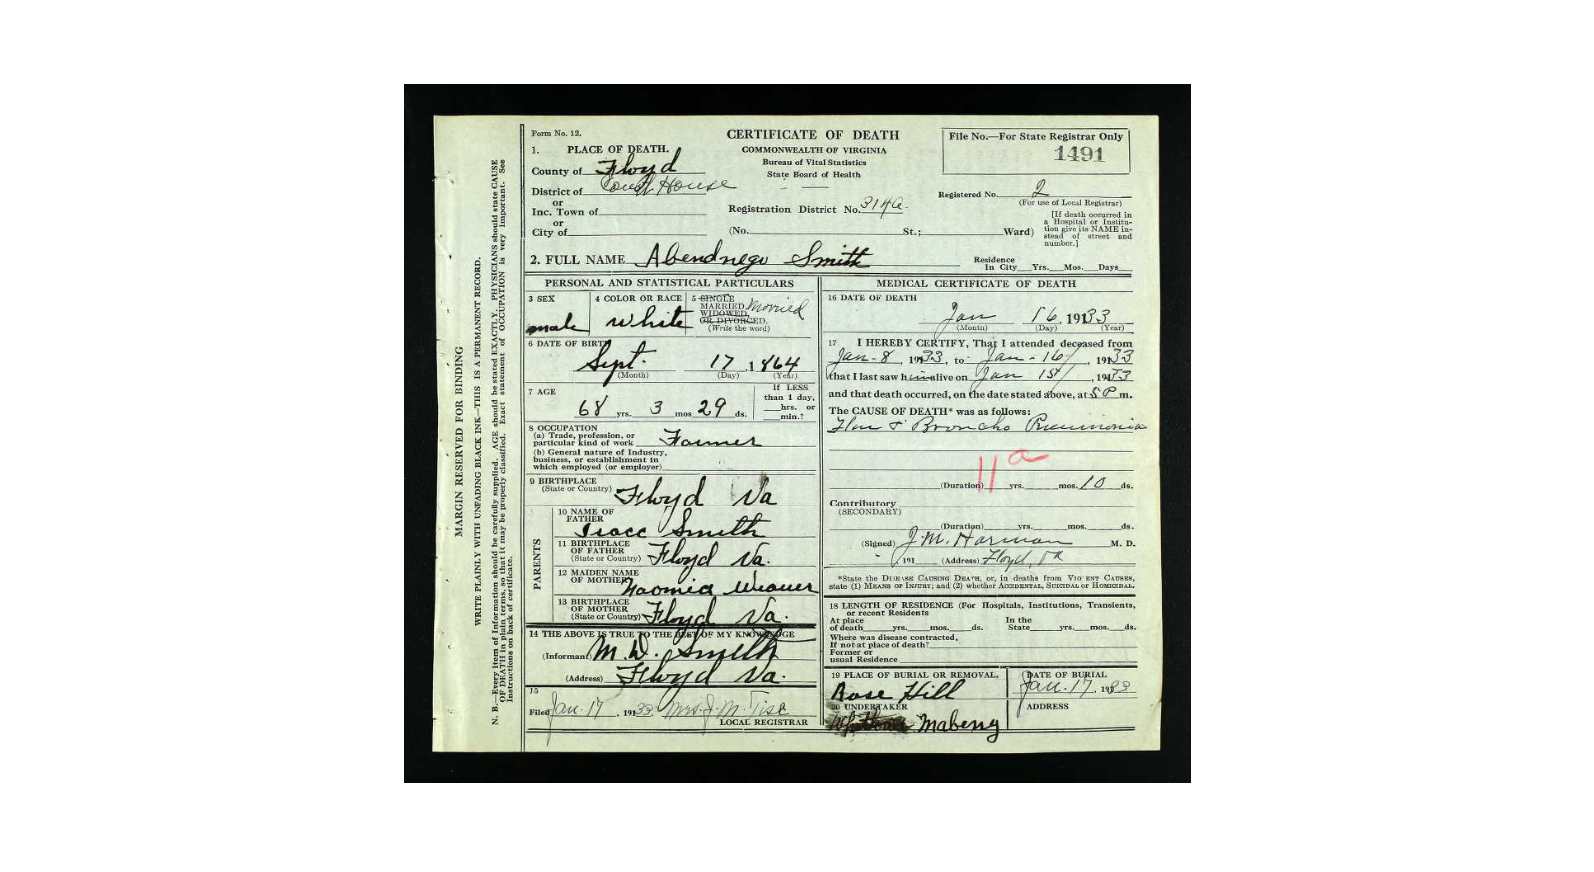 MARGIN RESERVED FOR BINDING
WRITE PLAINLY WITH UNFADING BLACK INK—THIS IS A PERMANENT RECORD.
N. B.—Every item of Information should be carefully supplied. AGE should be stated EXACTLY. PHYSICIANS should state CAUSE
OF DEATH in plain terms, so that it may be properly classified. Exact statement of OCCUPATION is very important. See
Instructions on back of certificate.
Form No. 12.
CERTIFICATE OF DEATH
COMMONWEALTH OF VIRGINIA
Bureau of Vital Statistics
State Board of Health
File No.—For State Registrar Only
1491
1. PLACE OF DEATH.
County of Floyd
District of Court House
or
Inc. Town of
or
City of
Registration District No. 3146
Registered No. 2
(For use of Local Registrar)
(No. St.; Ward)
[If death occurred in
a Hospital or Institu-
tion give its NAME in-
stead of street and
number.]
2. FULL NAME Abendnego Smith
Residence
In City Yrs. Mos. Days
PERSONAL AND STATISTICAL PARTICULARS
3 SEX
male
4 COLOR OR RACE
White
5 SINGLE
MARRIED Married
WIDOWED,
OR DIVORCED.
(Write the word)
6 DATE OF BIRTH
Sept. 17 1864
(Month) (Day) (Year)
7 AGE
68 yrs. 3 mos 29 ds.
If LESS
than 1 day,
hrs. or
min.?
8 OCCUPATION
(a) Trade, profession, or
particular kind of work Farmer
(b) General nature of Industry,
business, or establishment in
which employed (or employer)
9 BIRTHPLACE
(State or Country) Floyd Va
PARENTS
10 NAME OF
FATHER
Isacc Smith
11 BIRTHPLACE
OF FATHER
(State or Country) Floyd Va.
12 MAIDEN NAME
OF MOTHER
Naomia Weaver
13 BIRTHPLACE
OF MOTHER
(State or Country) Floyd Va.
14 THE ABOVE IS TRUE TO THE BEST OF MY KNOWLEDGE
(Informant) M. D. Smith
(Address) Floyd Va.
15
Filed Jan. 17, 1933. Mrs. J. M. Tise
LOCAL REGISTRAR
MEDICAL CERTIFICATE OF DEATH
16 DATE OF DEATH
Jan 16, 1933
(Month) (Day) (Year)
17 I HEREBY CERTIFY, That I attended deceased from
Jan-8, 1933, to Jan-16, 1933
that I last saw him alive on Jan 15, 1933
and that death occurred, on the date stated above, at 5 P m.
The CAUSE OF DEATH* was as follows:
Flu & Broncho Pneumonia
11a
(Duration) yrs. mos. 10 ds.
Contributory
(SECONDARY)
(Duration) yrs. mos. ds.
(Signed) J.M. Harman M. D.
, 191 (Address) Floyd, Va
*State the DISEASE CAUSING DEATH, or, in deaths from VIOLENT CAUSES,
state (1) MEANS OF INJURY; and (2) whether ACCIDENTAL, SUICIDAL or HOMICIDAL.
18 LENGTH OF RESIDENCE (For Hospitals, Institutions, Transients,
or recent Residents
At place In the
of death yrs. mos. ds. State yrs. mos. ds.
Where was disease contracted,
If not at place of death?
Former or
usual Residence
19 PLACE OF BURIAL OR REMOVAL,
Rose Hill
DATE OF BURIAL
Jan. 17, 1933
20 UNDERTAKER
Maberry
ADDRESS